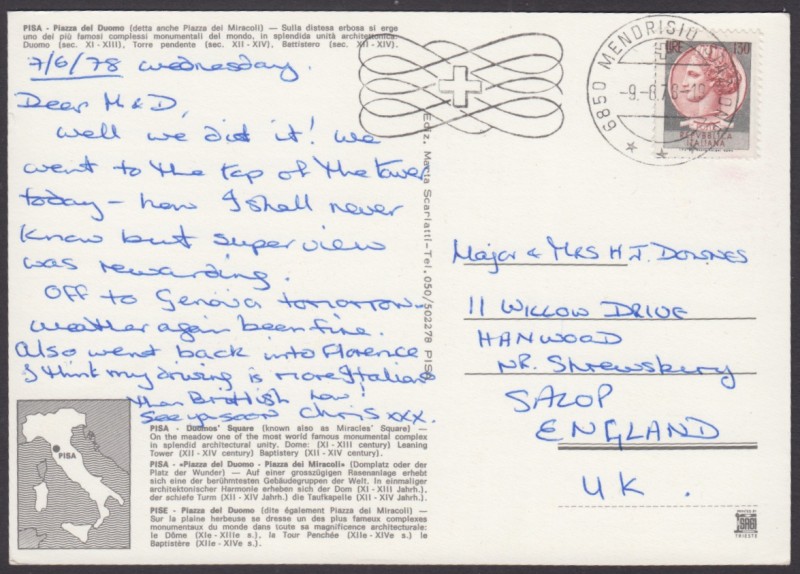 PISA - Piazza del Duomo (detta anche Piazza dei Miracoli) — Sulla distesa erbosa si erge
uno dei più famosi complessi monumentali del mondo, in splendida unità architettonica:
Duomo (sec. XI - XIII), Torre pendente (sec. XII - XIV). Battistero (sec. XII - XIV).
7/6/78 wednesday.
Dear M & D,
Well we did it! We
went to the top of the tower
today - how I shall never
know but super view
was rewarding.
Off to Genova tomorrow
weather again been fine.
Also went back into Florence
I think my driving is more Italian
than Brittish now!
See you soon Chris xxx.
PISA
PISA - Duomos' Square (known also as Miracles' Square) —
On the meadow one of the most world famous monumental complex
in splendid architectural unity. Dome: (XI - XIII century) Leaning
Tower (XII - XIV century) Baptistery (XII - XIV century).
PISA - «Piazza del Duomo - Piazza dei Miracoli» (Domplatz oder der
Platz der Wunder) — Auf einer grosszügigen Rasenanlage erhebt
sich eine der berühmtesten Gebäudegruppen der Welt. In einmaliger
architektonischer Harmonie erheben sich der Dom (XI - XIII Jahrh.),
der schiefe Turm (XII - XIV Jahrh.) die Taufkapelle (XII - XIV Jahrh.).
PISE - Piazza del Duomo (dite également Piazza dei Miracoli) —
Sur la plaine herbeuse se dresse un des plus fameux complexes
monumentaux du monde dans toute sa magnificence architecturale:
le Dôme (XIe - XIIIe s.), le Tour Penchée (XIIe - XIVe s.) le
Baptistère (XIIe - XIVe s.).
Ediz. Marta Scarlatti - Tel. 050/502278 PISA
6850 MENDRISIO
-9.-6.78-10
130
REPVBBLICA
ITALIANA
Major & Mrs H.J. Downes
11 Willow Drive
Hanwood
Nr. Shrewsbury
Salop
England
U K .
SAGI
TRIESTE